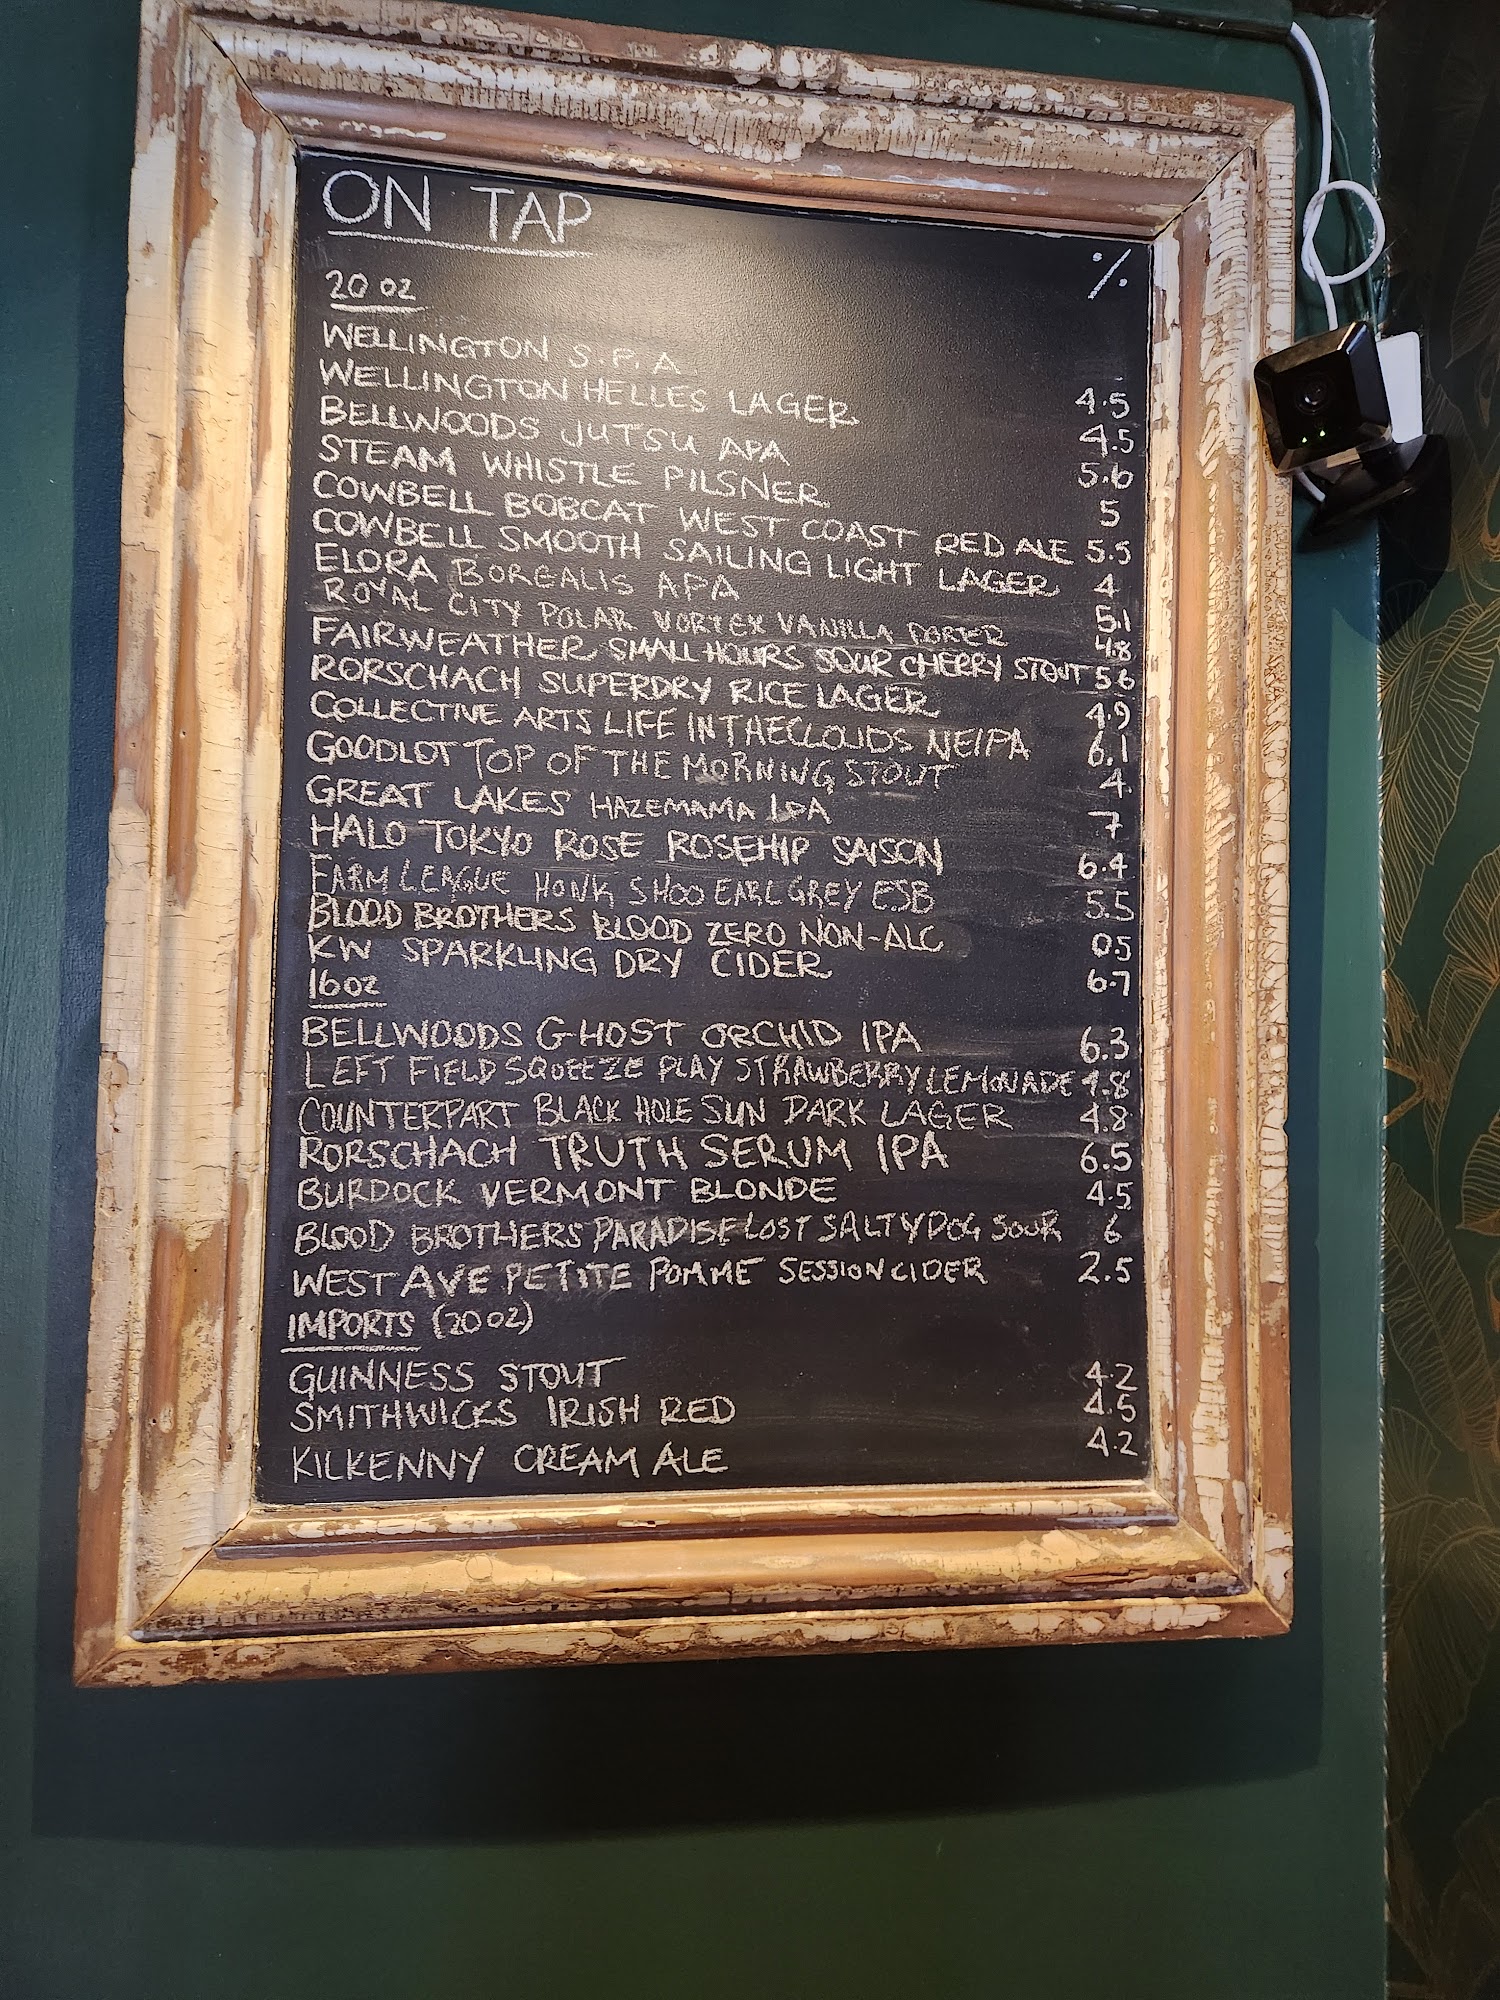 ON TAP
%
20 oz
WELLINGTON S.P.A 4.5
WELLINGTON HELLES LAGER 4.5
BELLWOODS JUTSU APA 5.6
STEAM WHISTLE PILSNER 5
COWBELL BOBCAT WEST COAST RED ALE 5.5
COWBELL SMOOTH SAILING LIGHT LAGER 4
ELORA BOREALIS APA 5.1
ROYAL CITY POLAR VORTEX VANILLA PORTER 4.8
FAIRWEATHER SMALL HOURS SOUR CHERRY STOUT 5.6
RORSCHACH SUPERDRY RICE LAGER 4.9
COLLECTIVE ARTS LIFE IN THE CLOUDS NEIPA 6.1
GOODLOT TOP OF THE MORNING STOUT 4
GREAT LAKES HAZEMAMA IPA 7
HALO TOKYO ROSE ROSEHIP SAISON 6.4
FARM LEAGUE HONK SHOO EARL GREY ESB 5.5
BLOOD BROTHERS BLOOD ZERO NON-ALC 05
KW SPARKLING DRY CIDER 6.7
16oz
BELLWOODS GHOST ORCHID IPA 6.3
LEFT FIELD SQUEEZE PLAY STRAWBERRY LEMONADE 4.8
COUNTERPART BLACK HOLE SUN DARK LAGER 4.8
RORSCHACH TRUTH SERUM IPA 6.5
BURDOCK VERMONT BLONDE 4.5
BLOOD BROTHERS PARADISE LOST SALTY DOG SOUR 6
WEST AVE PETITE POMME SESSION CIDER 2.5
IMPORTS (20 oz)
GUINNESS STOUT 4.2
SMITHWICKS IRISH RED 4.5
KILKENNY CREAM ALE 4.2